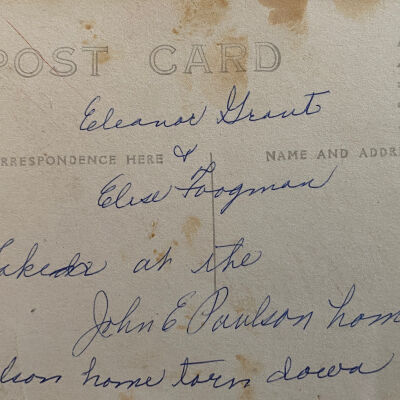 POST CARD
Eleanor Grant
RRESPONDENCE HERE & NAME AND ADDR
Elese Foogman
at the
John E Paulson hom
lson home torn down